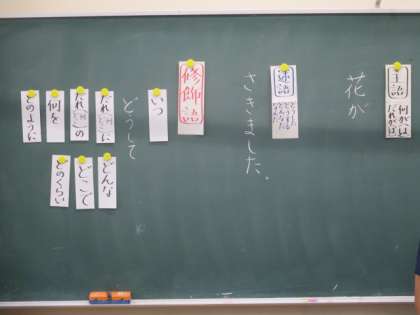 主語
何が(は)
だれが(は)
花が
述語
どうした
さきました。
修飾語
いつ
どうして
だれ(何)に
だれ(何)の
何を
どのように
どんな
どこで
どのくらい